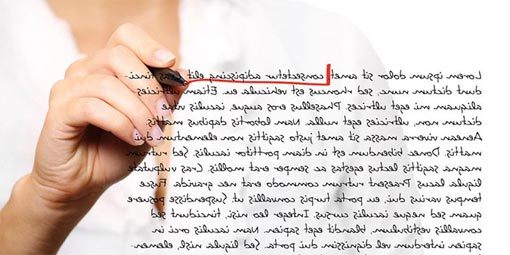 Lorem ipsum dolor sit amet, consectetur adipiscing elit. Cras tinci-
dunt dictum nunc, sed rhoncus est vehicula eu. Etiam ultricies
aliquam mi eget ultrices. Phasellus eros augue, iaculis vitae
dictum non, ultricies eget nulla. Nam lobortis dapibus mattis.
Aenean viverra massa sit amet justo sagittis non elementum dui
mattis. Donec bibendum est in diam porttitor iaculis. Sed quam
magna sagittis luctus egestas ac semper erat mollis. Cras vulputate
ligula lacus. Praesent rutrum commodo erat nec gravida. Fusce
tempus varius dui, eu porta turpis convallis ut. Suspendisse posuere
quam sed neque iaculis cursus. Integer leo nisl, tincidunt sed
vestibulum eget, blandit eget sapien. Nam iaculis in orci
vel sapien interdum vel dignissim dui porta. Sed ligula nisl, elemen-